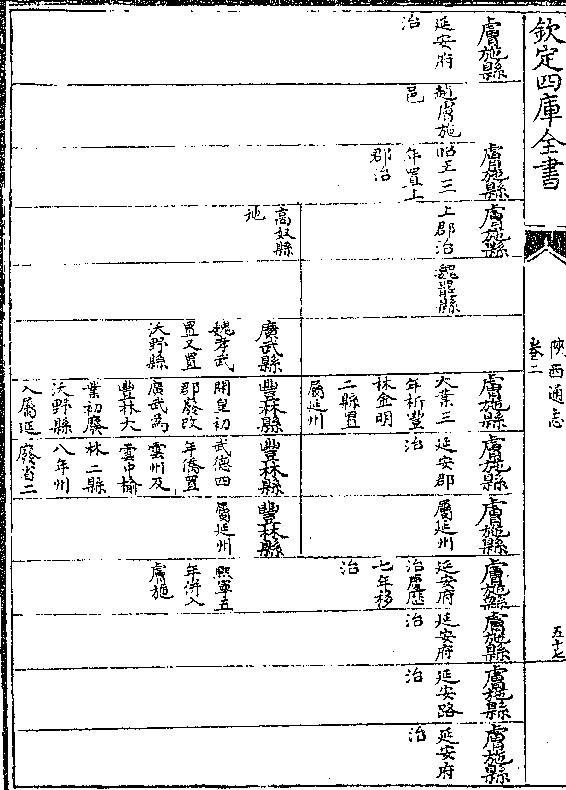 欽定四庫全書
陝西通志
卷二
五十七
膚施縣
延安府
治
趙膚施
邑
膚施縣
昭王三
年置上
郡治
膚施縣
上郡治
高奴縣
地
魏罷縣
廣武縣
魏孝武
置又置
沃野縣
膚施縣
大業三
年析豐
林金明
二縣置
屬延州
豐林縣
開皇初
郡廢改
廣武為
豐林大
業初廢
沃野縣
入屬延
膚施縣
延安郡
治
豐林縣
武德四
年僑置
雲州及
雲中榆
林二縣
八年州
廢省二
膚施縣
屬延州
豐林縣
屬延州
膚施縣
延安府
治慶歷
七年移
治
熙寧五
年併入
膚施
膚施縣
延安府
治
膚施縣
延安路
治
膚施縣
延安府
治